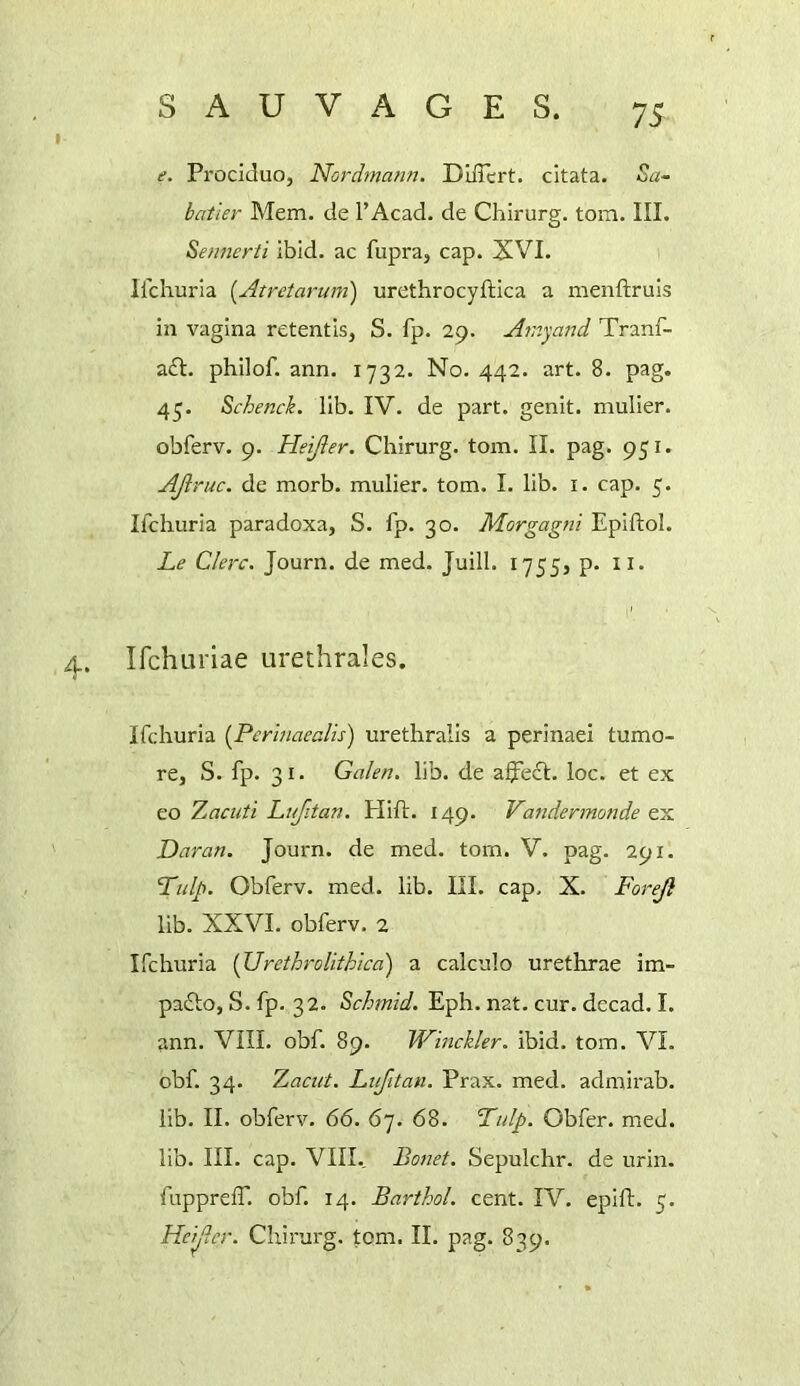 SAUVAGES. 75
e. Prociduo, Nordmann. Diſſert. citata. Sa-
batier Mem. de l'Acad. de Chirurg. tom. III.
Sennerti ibid. ac ſupra, cap. XVI.
Iſchuria (Atretarum) urethrocyſtica a menſtruis
in vagina retentis, S. ſp. 29. Amyand Tranſ-
act. philoſ. ann. 1732. No. 442. art. 8. pag.
45. Schenck. lib. IV. de part. genit. mulier.
obſerv. 9. Heiſter. Chirurg. tom. II. pag. 951.
Aſtruc. de morb. mulier. tom. I. lib. 1. cap. 5.
Iſchuria paradoxa, S. ſp. 30. Morgagni Epiſtol.
Le Clerc. Journ. de med. Juill. 1755, p. 11.
4. Iſchuriae urethrales.
Iſchuria (Perinaealis) urethralis a perinaei tumo-
re, S. ſp. 31. Galen. lib. de affect. loc. et ex
eo Zacuti Luſitan. Hiſt. 149. Vandermonde ex
Daran. Journ. de med. tom. V. pag. 291.
Tulp. Obſerv. med. lib. III. cap. X. Foreſt
lib. XXVI. obſerv. 2
Iſchuria (Urethrolithica) a calculo urethrae im-
pacto, S. ſp. 32. Schmid. Eph. nat. cur. decad. I.
ann. VIII. obſ. 89. Winckler. ibid. tom. VI.
obſ. 34. Zacut. Luſitan. Prax. med. admirab.
lib. II. obſerv. 66. 67. 68. Tulp. Obſer. med.
lib. III. cap. VIII. Bonet. Sepulchr. de urin.
ſuppreſſ. obſ. 14. Barthol. cent. IV. epiſt. 5.
Heiſter. Chirurg. tom. II. pag. 839.